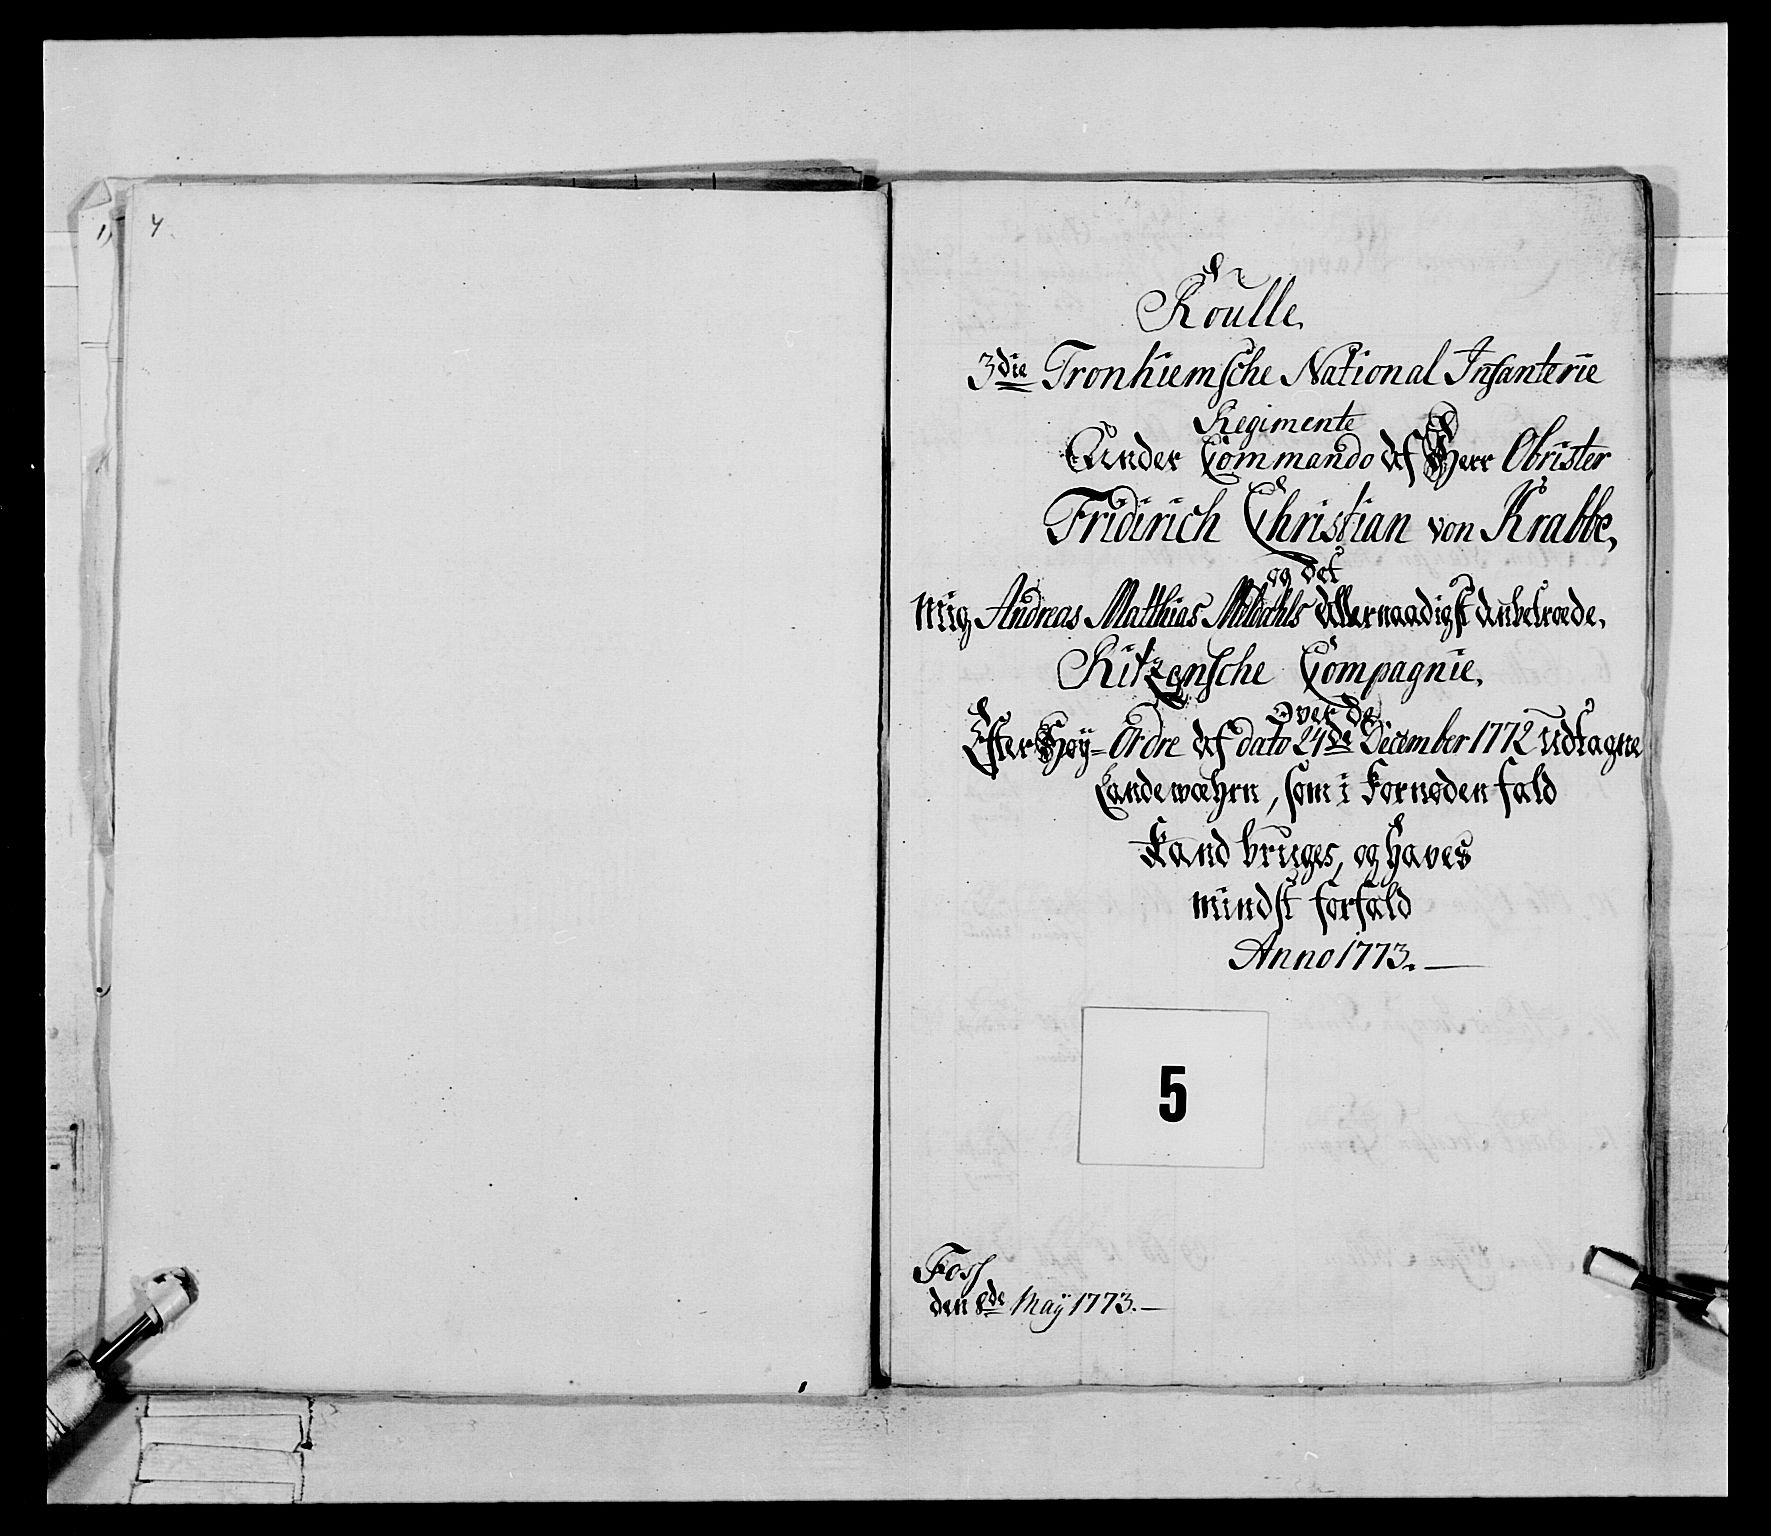 1)
4
Roulle,
3die Tronhiemsche National Infanterie
Regimente
Under Commando af Herr Obrister
Fridirich Christian von Krabbe,
og det
Mig Andreas Matthias Meldahls Allernaadigst anbetroede,
Ritzensche Compagnie,
over de
Efter Høÿ-Ordre af dato 24de December 1772 udtagne
Landewæhrn, som i fornøden fald
kand bruges, og haves
mindst forfald
Anno 1773.
5
Foss
den 8de Maÿ 1773.